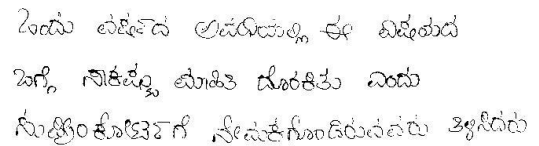 ಒಂದು ವರ್ಷದ ಅವಧಿಯಲ್ಲಿ ಈ ವಿಷಯದ
ಬಗ್ಗೆ ಸಾಕಷ್ಟು ಮಾಹಿತಿ ದೊರಕಿತು ಎಂದು
ಸುಪ್ರೀಂಕೋರ್ಟ್‌ಗೆ ನೇಮಕಗೊಂಡಿರುವವರು ತಿಳಿಸಿದರು